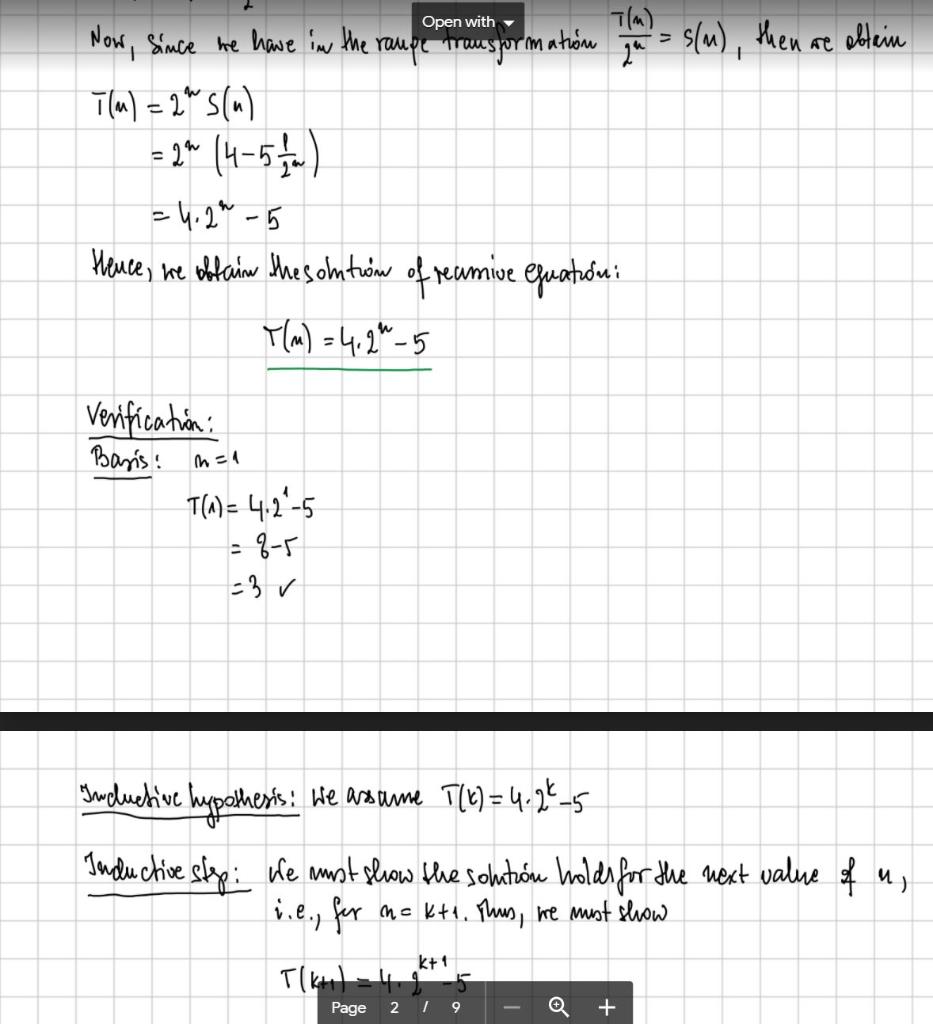 Open with
Now, since we have in the range transformation T(n)/2^n = S(n), then we obtain
T(n) = 2^n S(n)
= 2^n (4-5 1/2^n)
= 4·2^n - 5
Hence, we obtain the solution of recursive equation:
T(n) = 4·2^n - 5
Verification:
Basis: n=1
T(1) = 4·2^1-5
= 8-5
= 3 ✓
Inductive hypothesis: We assume T(k) = 4·2^k-5
Inductive step: We must show the solution holds for the next value of n,
i.e., for n= k+1. Thus, we must show
T(k+1) = 4·2^k+1-5
Page 2 / 9